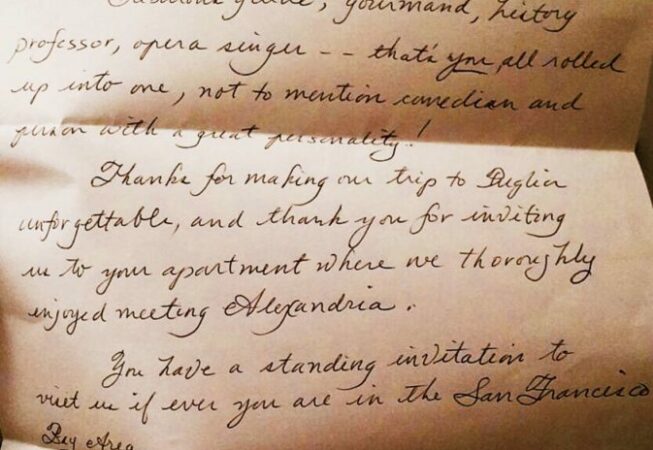 guide, gourmand, history
professor, opera singer -- that's you, all rolled
up into one, not to mention comedian and
person with a great personality!
Thanks for making our trip to Puglia
unforgettable, and thank you for inviting
us to your apartment where we thoroughly
enjoyed meeting Alexandria.
You have a standing invitation to
visit us if ever you are in the San Francisco
Bay Area